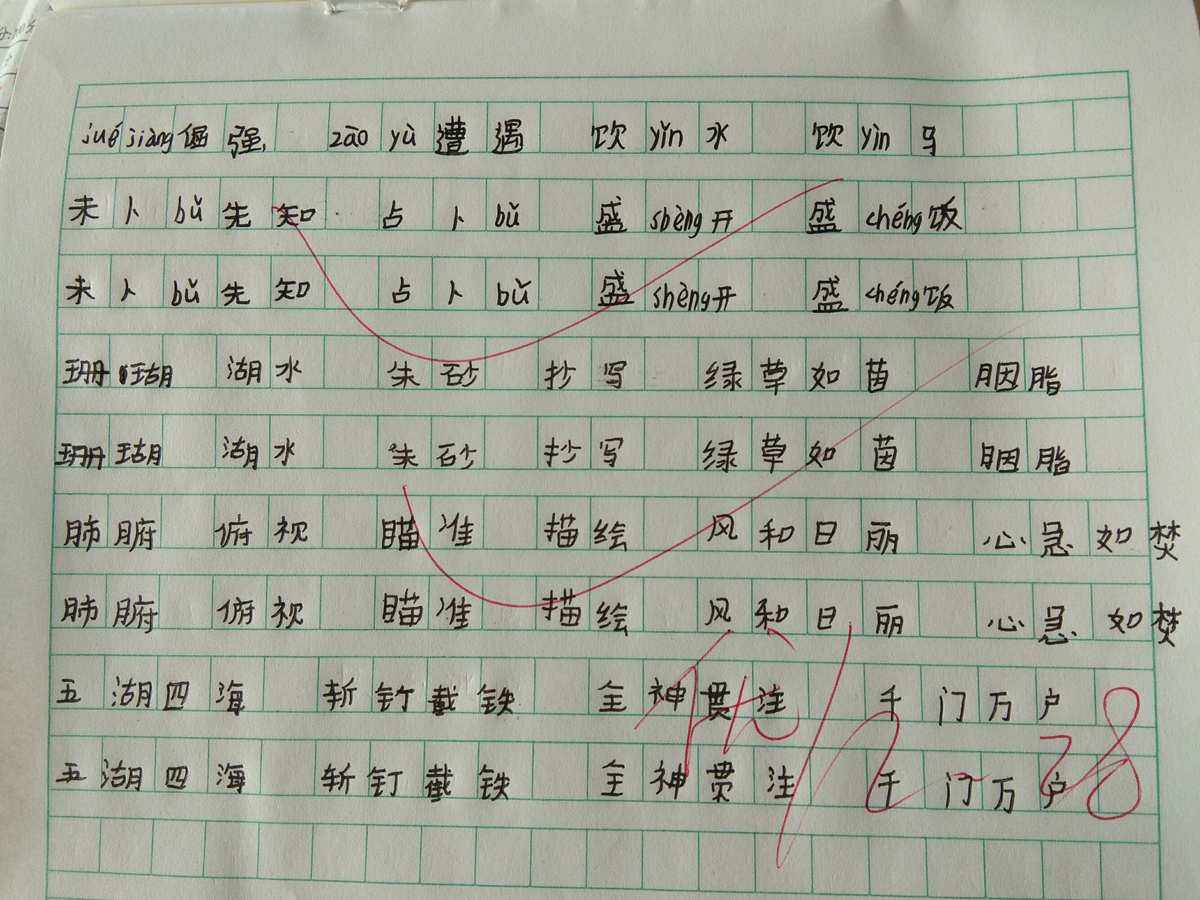 jué jiàng 倔强 zāo yù 遭遇 饮 yǐn 水 饮 yìn 马
未卜 bǔ 先知 占卜 bǔ 盛 shèng 开 盛 chéng 饭
未卜 bǔ 先知 占卜 bǔ 盛 shèng 开 盛 chéng 饭
珊瑚 湖水 朱砂 抄写 绿草如茵 胭脂
珊瑚 湖水 朱砂 抄写 绿草如茵 胭脂
肺腑 俯视 瞄准 描绘 风和日丽 心急如焚
肺腑 俯视 瞄准 描绘 风和日丽 心急如焚
五湖四海 斩钉截铁 全神贯注 千门万户
五湖四海 斩钉截铁 全神贯注 千门万户